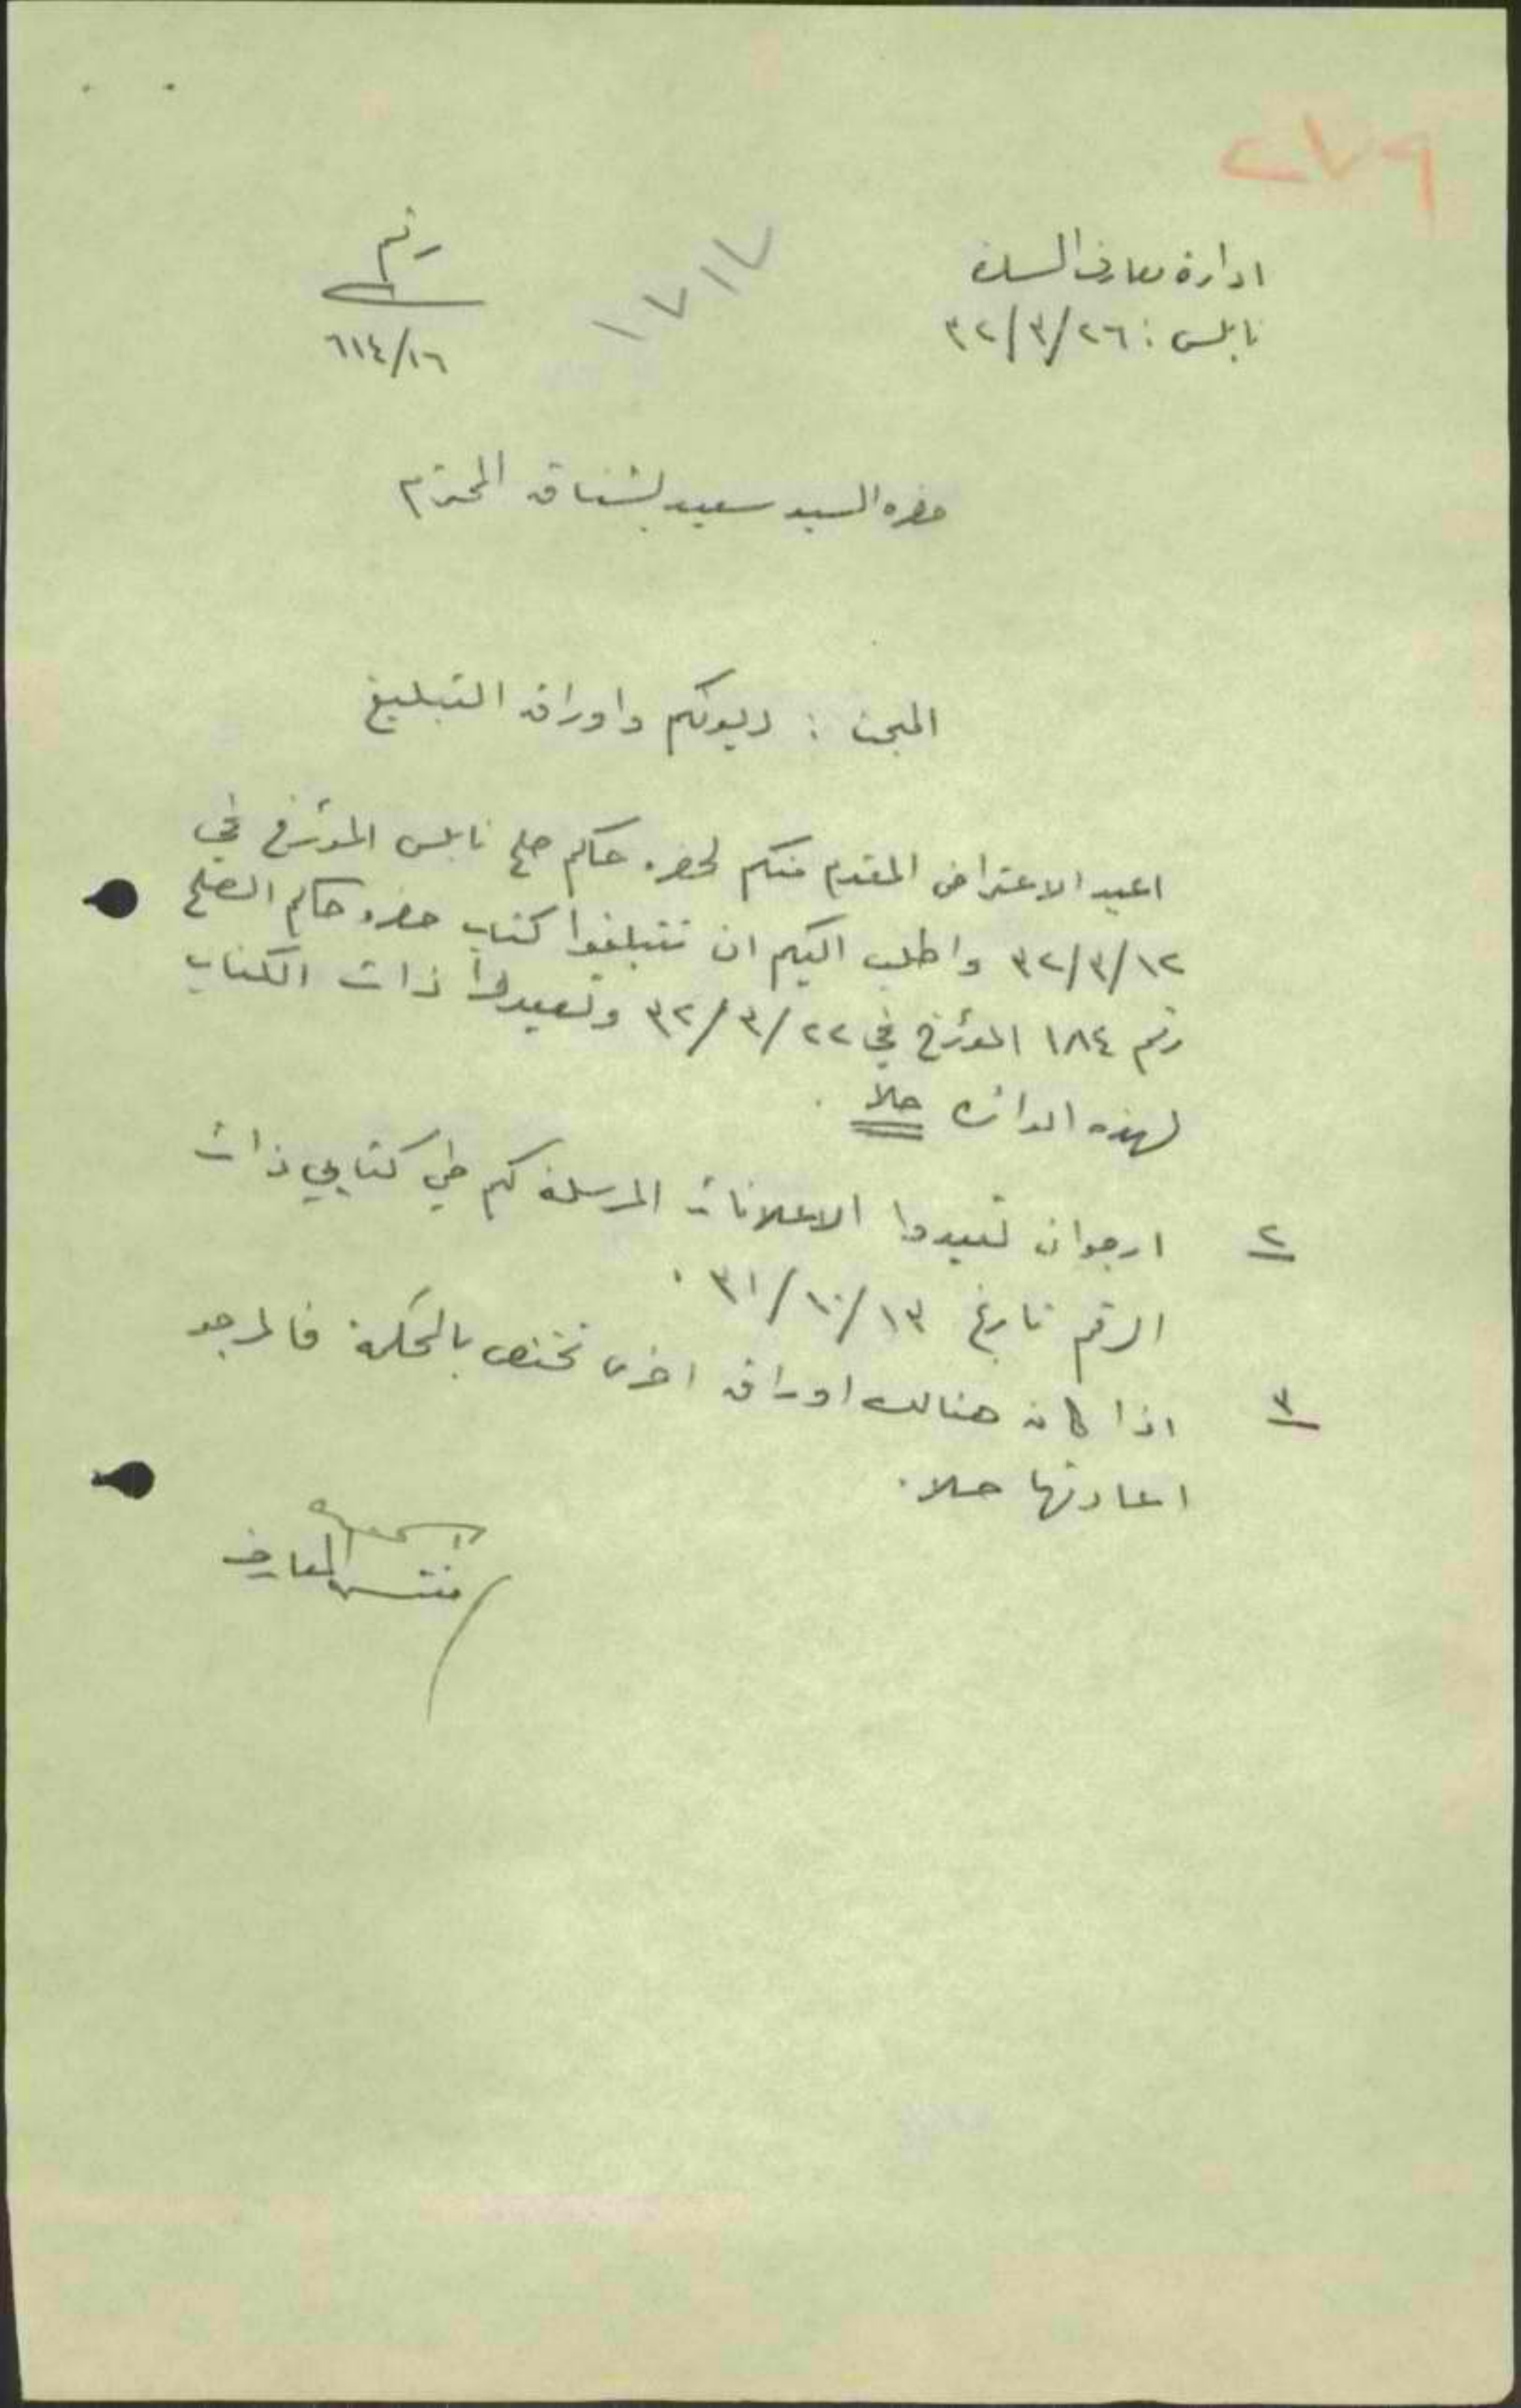 ٢٧٩
ادارة معارف السامرة
نابلس : ٢٦/٣/٣٢
١٧١٧
رقم
٦١٤/١٦
حضرة السيد سعيد بشناق المحترم
المبحث : ديونكم واوراق التبليغ
اعيد الاعتراض المقدم منكم لحضرة حاكم صلح نابلس المؤرخ في
٣٢/٣/١٢ واطلب اليكم ان تتبلغوا كتاب حضرة حاكم الصلح
رقم ١٨٤ المؤرخ في ٣٢/٣/٢٢ وتعيدوا ذات الكتاب
لهذه الدائرة حالا .
٢ ارجو ان تعيدوا الاعلانات المرسلة لكم طي كتابي ذات
الرقم تاريخ ٣١/١٠/١٣ .
٣ اذا كان هنالك اوراق اخرى تختص بالمحكمة فالمرجو
اعادتها حالا .
مفتش المعارف